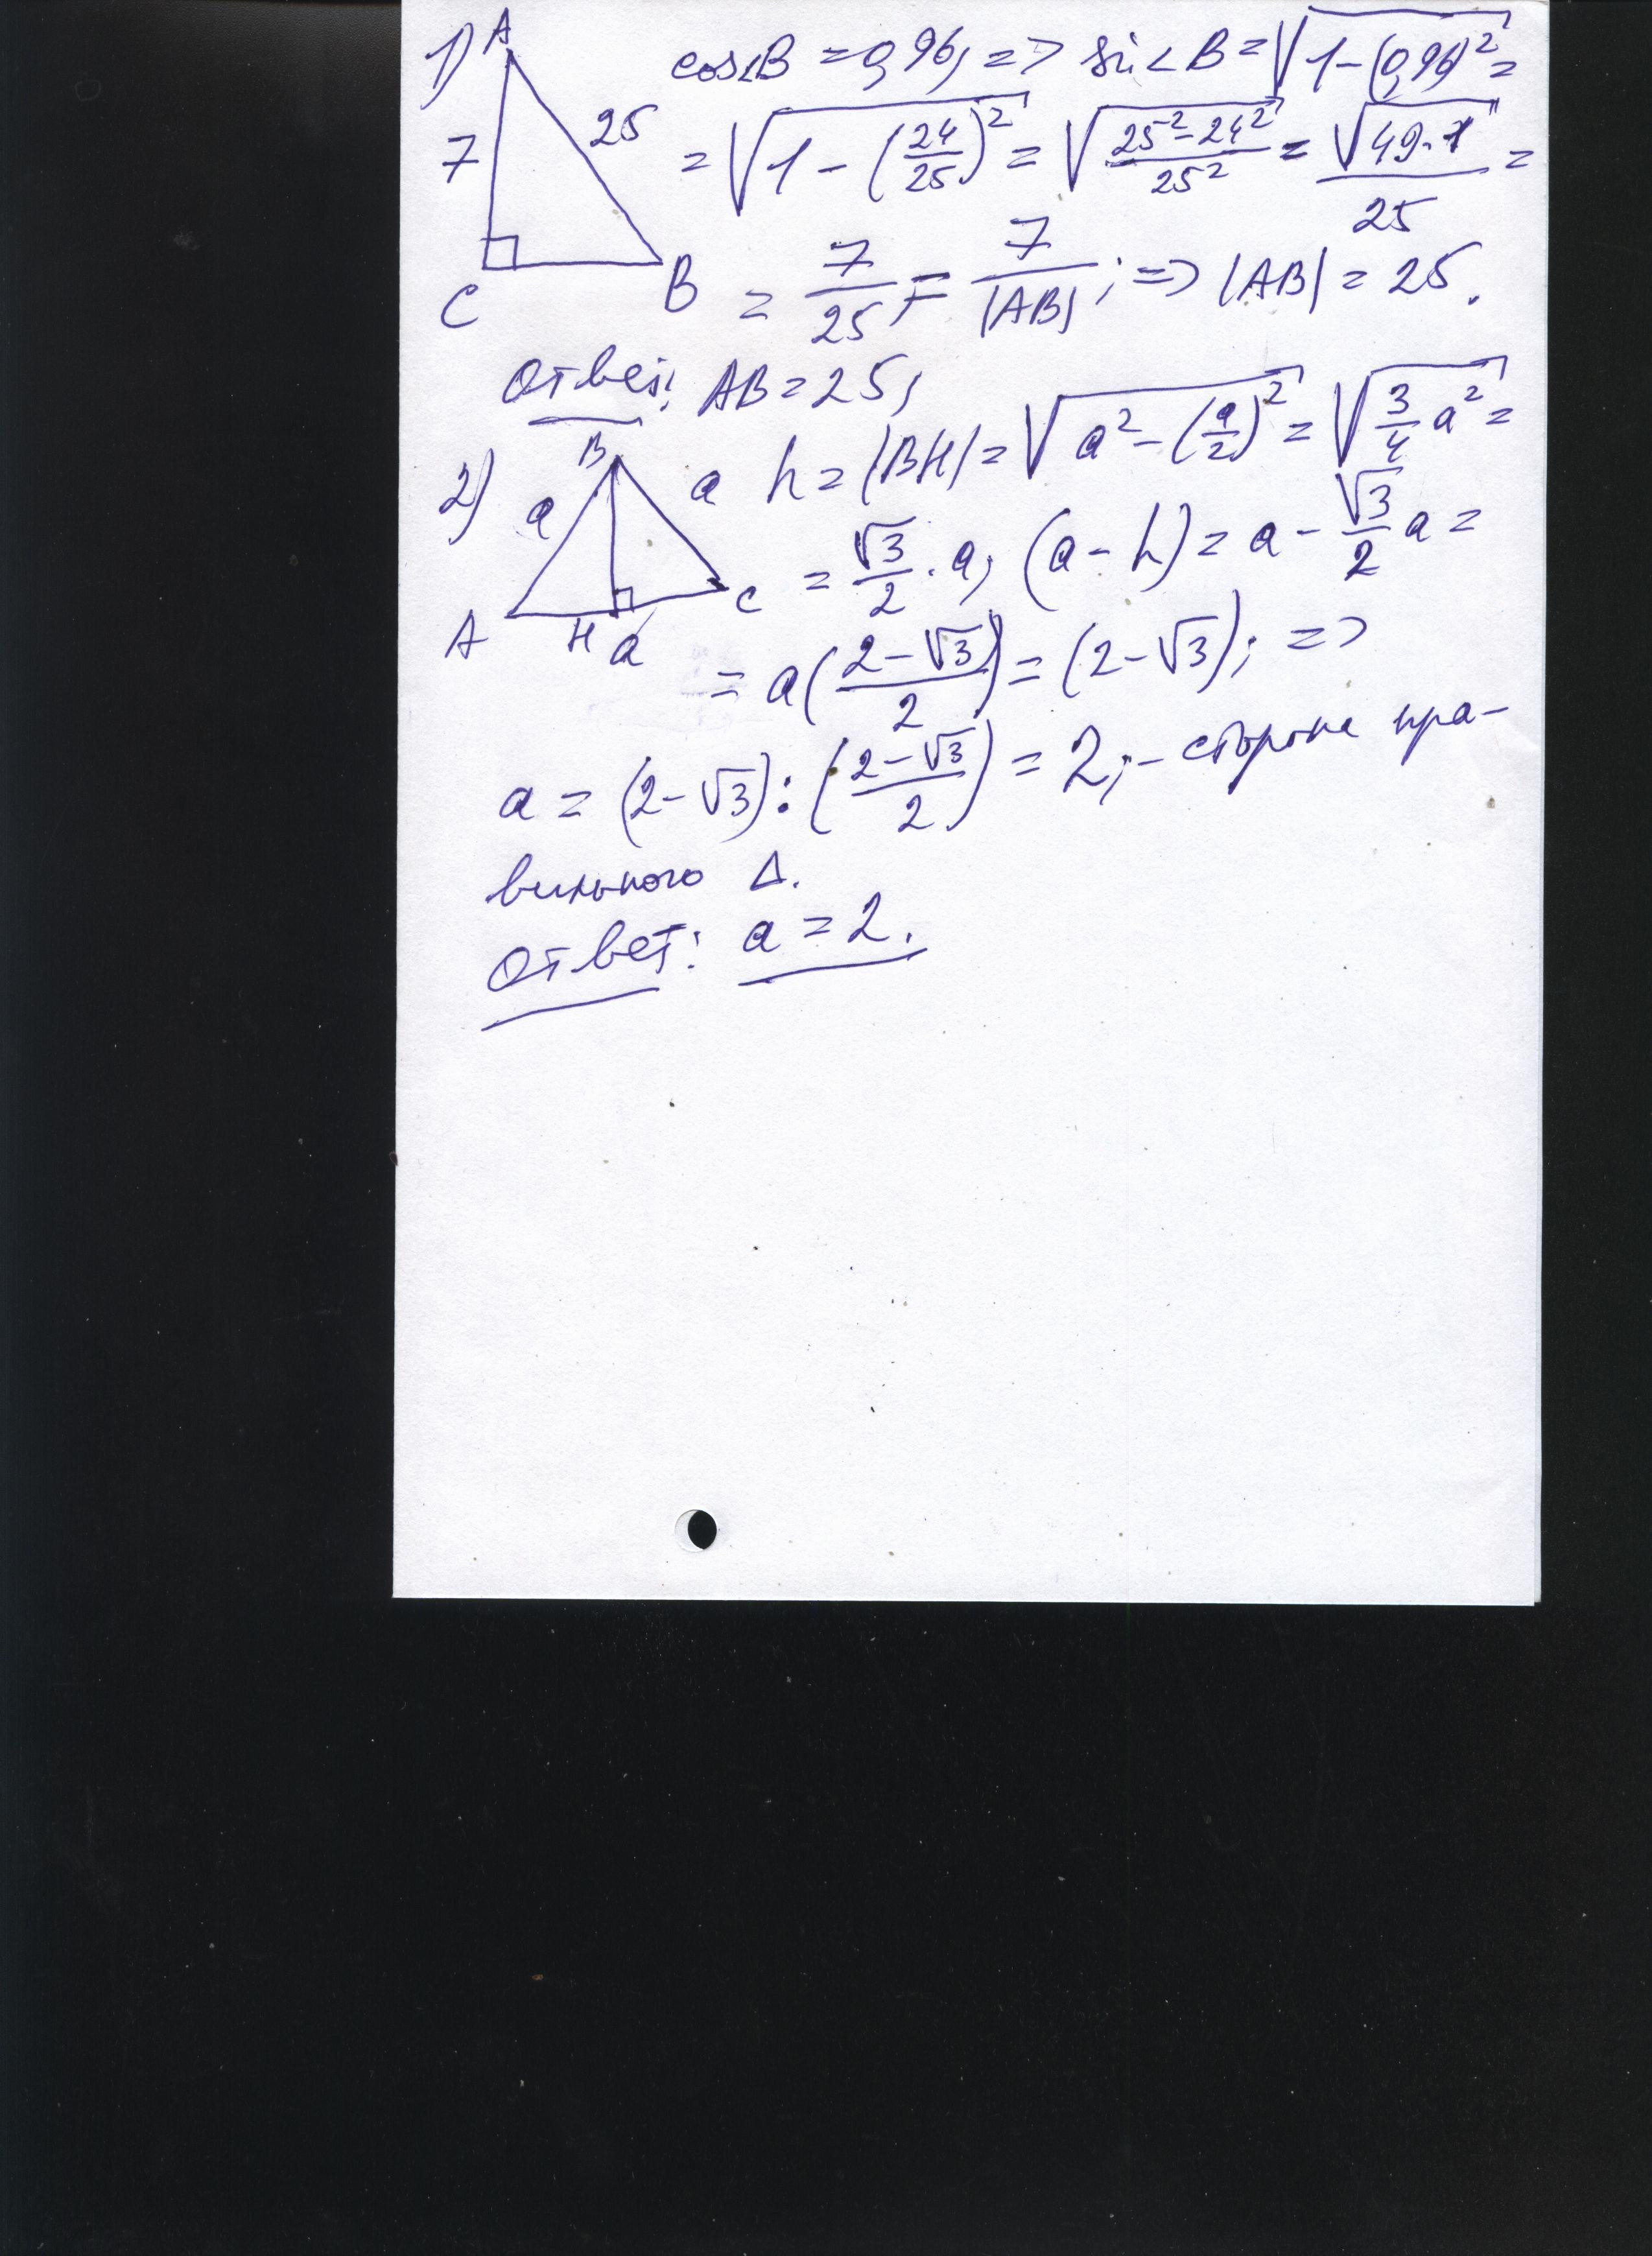 1) A
7
25
C
B
cos∠B = 0,96; => sin∠B = √(1-(0,96)²) =
= √(1-(24/25)²) = √((25²-24²)/25²) = √(49·1)/25 =
= 7/25; = 7/|AB|; => |AB| = 25.
Ответ: AB = 25;
2) B
a
a
A
H
a
C
h = |BH| = √(a²-(a/2)²) = √(3/4 a²) =
= √3/2 · a; (a-h) = a - √3/2 a =
= a((2-√3)/2) = (2-√3); =>
a = (2-√3):((2-√3)/2) = 2; - сторона пра-
вильного Δ.
Ответ: a = 2.